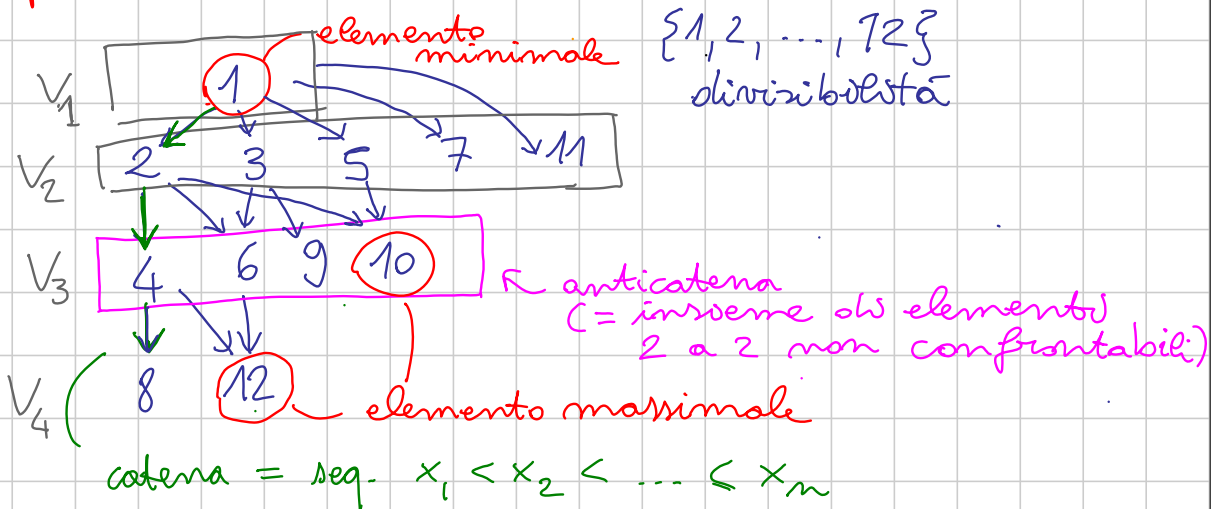 elemento
minimale
{1, 2, ..., 12}
divisibilità
V1 1
V2 2 3 5 7 11
V3 4 6 9 10
anticatena
(= insieme di elementi
2 a 2 non confrontabili)
V4 8 12
elemento massimale
catena = seq. x1 < x2 < .... < xn